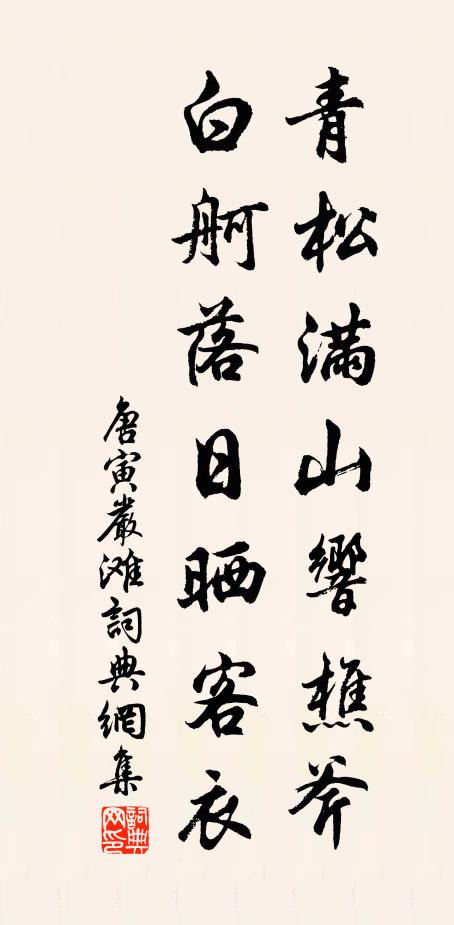 青松滿山響樵斧
白舸落日晒客衣
唐寅嚴滩詞典網集
詞典网印